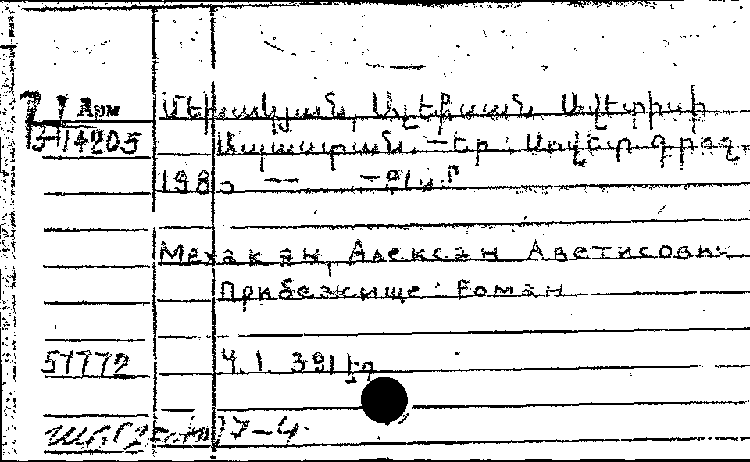 71 Арм Մեխակյան, Ալեքսան Ավետիսի
14205 Ապաստան. — Եր.: Սովետ. գրող,
198
Мехакян, Алексан Аветисович
Прибежище: Роман
51772 Ч.1. 391 էջ
7-4.